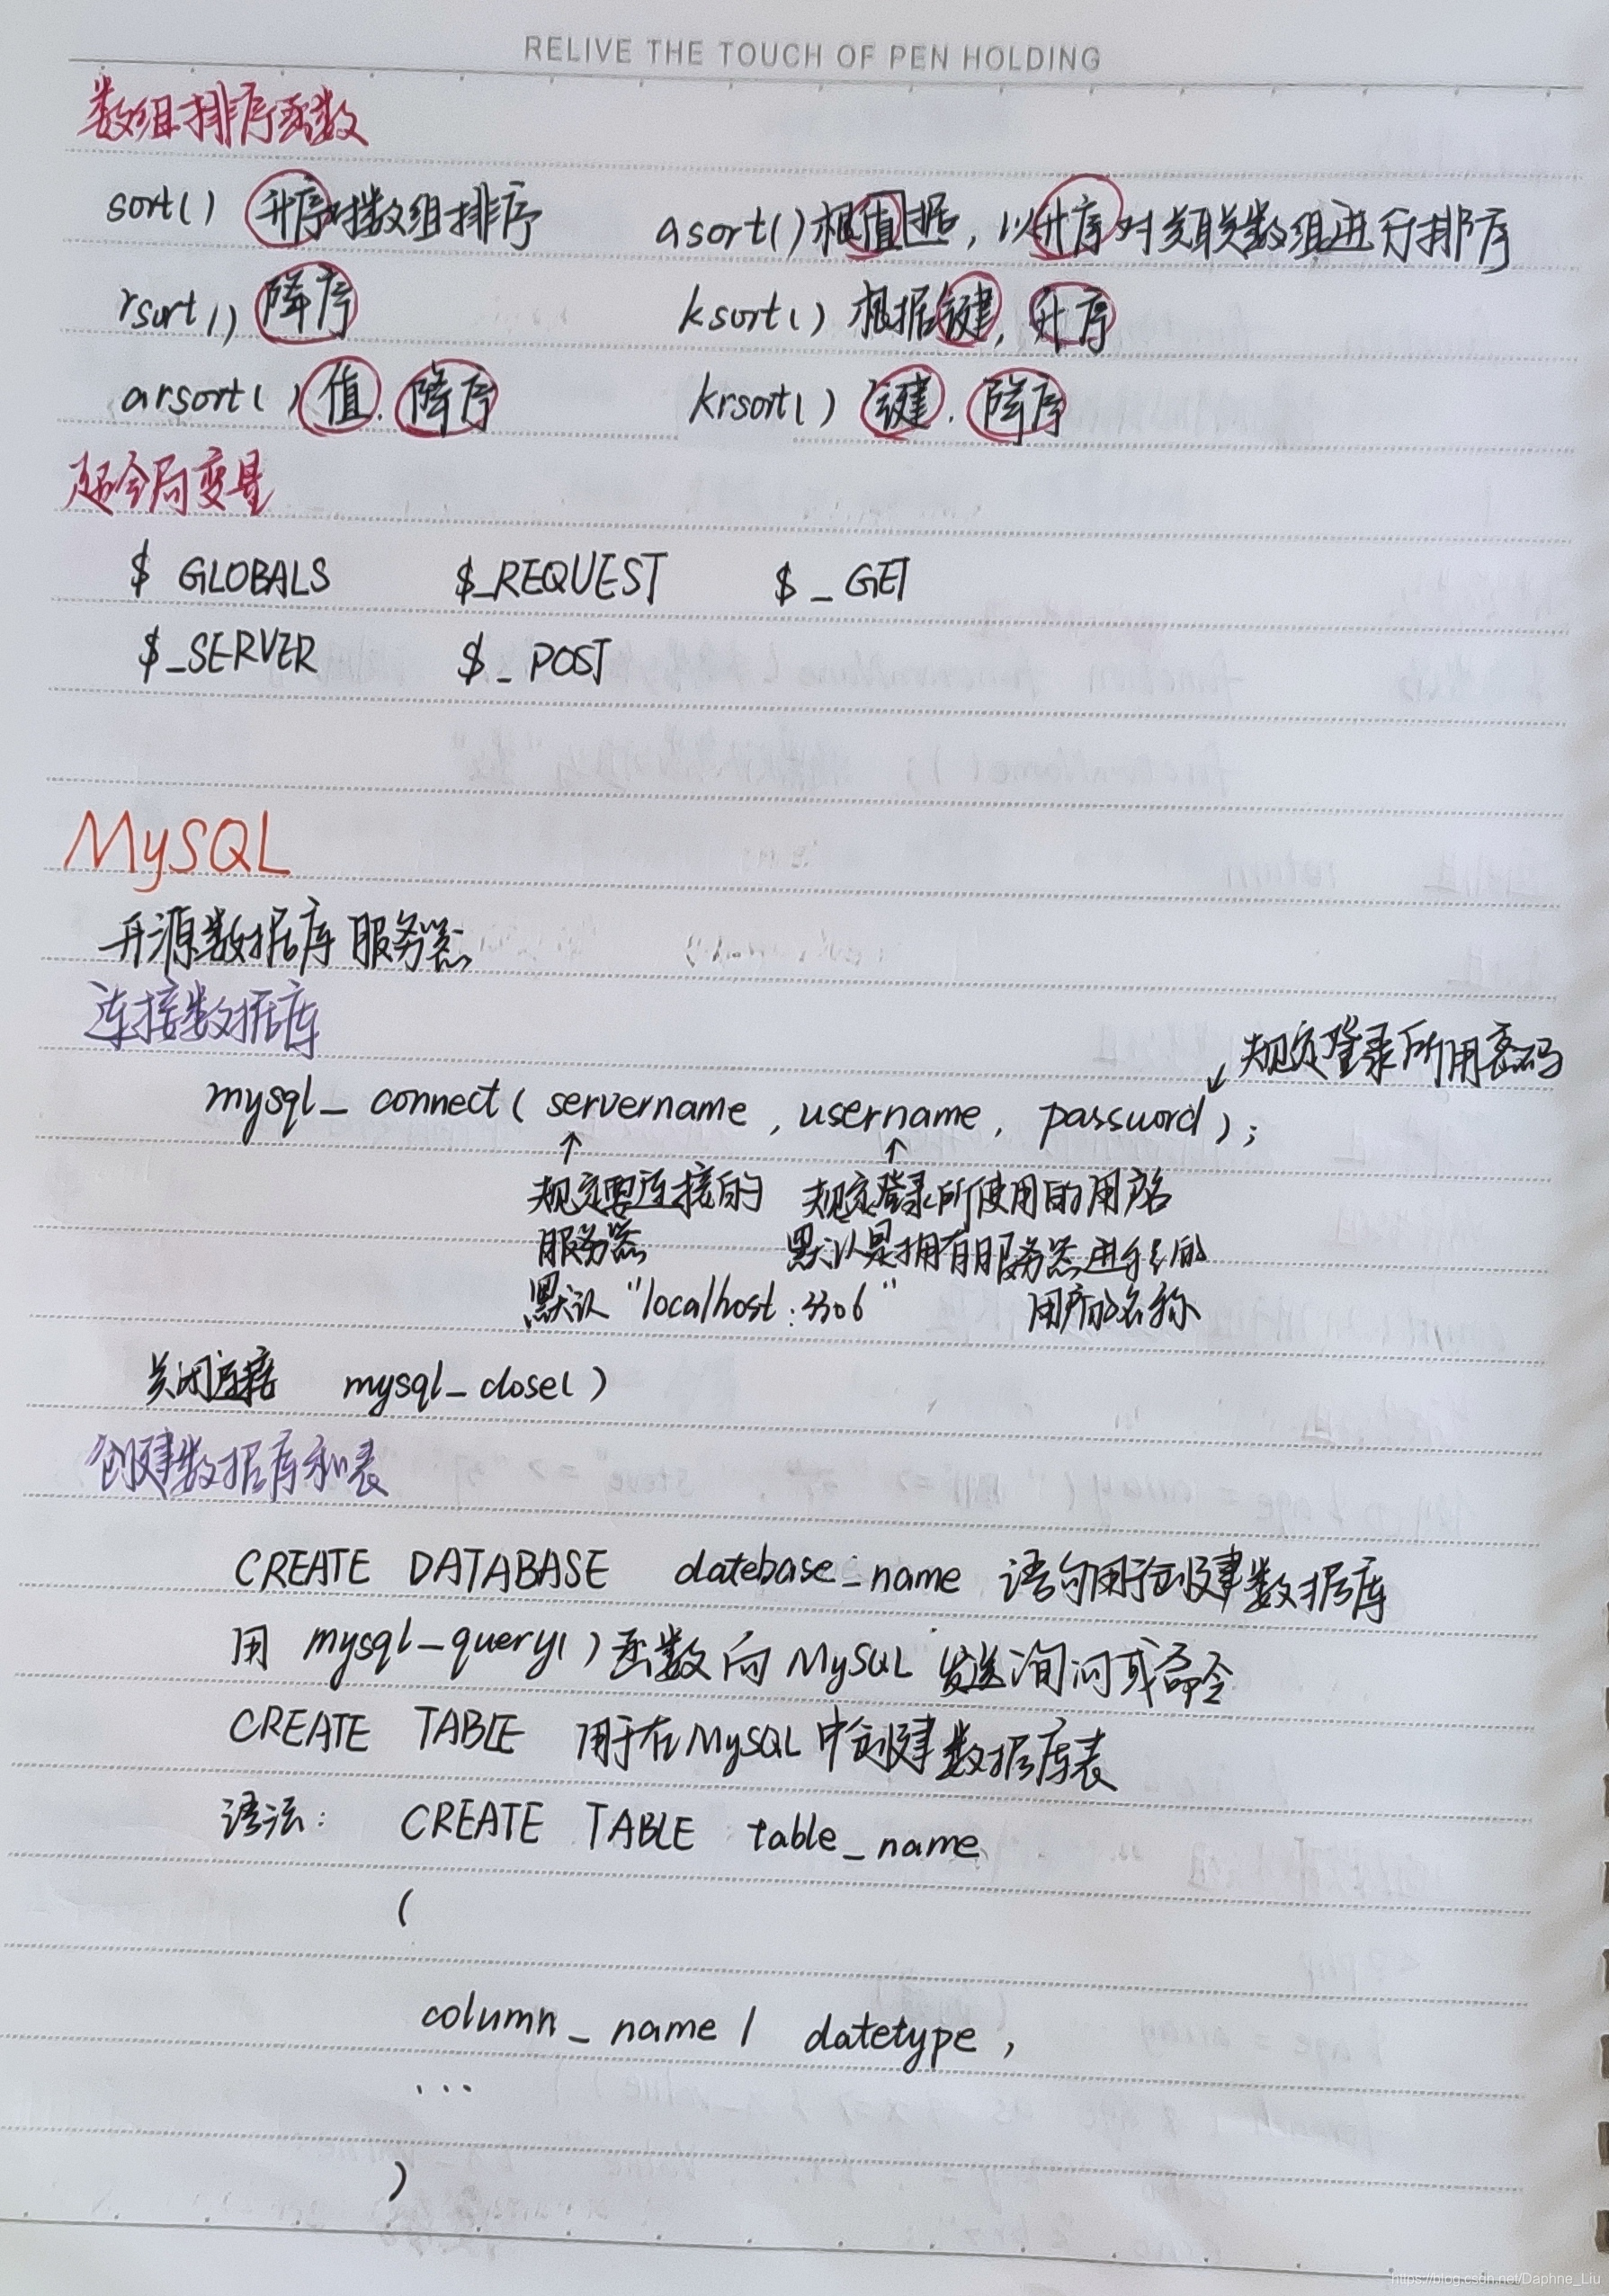 RELIVE THE TOUCH OF PEN HOLDING
数组排序函数
sort() 升序对数组排序 asort()根值据，以升序对关联数组进行排序
rsort() 降序 ksort() 根据键，升序
arsort() 值．降序 krsort() 键．降序
超全局变量
$ GLOBALS $_REQUEST $_GET
$_SERVER $_POST
MySQL
开源数据库服务器
连接数据库
规定登录所用密码
mysql_connect( servername , username , password );
规定要连接的 规定登录所使用的用户名
服务器 默认是拥有服务器进程的
默认 "localhost:3306" 用户的名称
关闭连接 mysql_close()
创建数据库和表
CREATE DATABASE datebase_name 语句用于创建数据库
用 mysql_query()函数向 MySQL 发送询问或命令
CREATE TABLE 用于在MySQL中创建数据库表
语法: CREATE TABLE table_name
(
column_name1 datetype ,
...
)
https://blog.csdn.net/Daphne_Liu